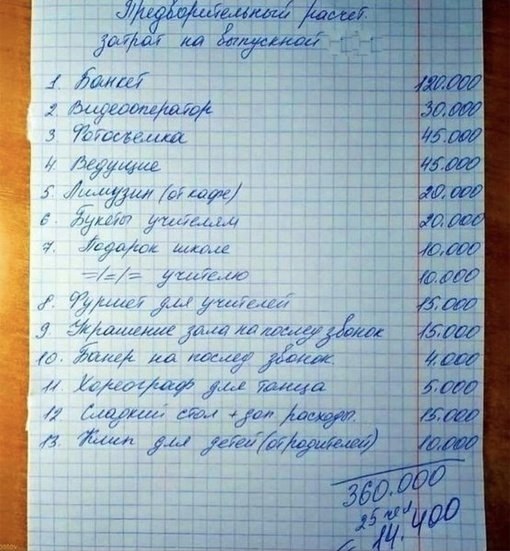 Предворительный расчет.
затрат на выпускной
1. Банкет 120.000
2. Видеооператор 30.000
3 Фотосъемка 45.000
4. Ведущие 45.000
5 Лимузин (от кафе) 20.000
6. Букеты учителям 20.000
7. Подарок школе 10.000
=/=/= учителю 10.000
8. Фуршет для учителей 15.000
9 Украшение зала на послед звонок 15.000
10. Банер на послед звонок. 4.000
11. Хореограф для танца 5.000
12 Сладкий стол + доп. расходы. 15.000
13. Клип для детей (от родителей) 10.000
360.000
25 чел
14.400